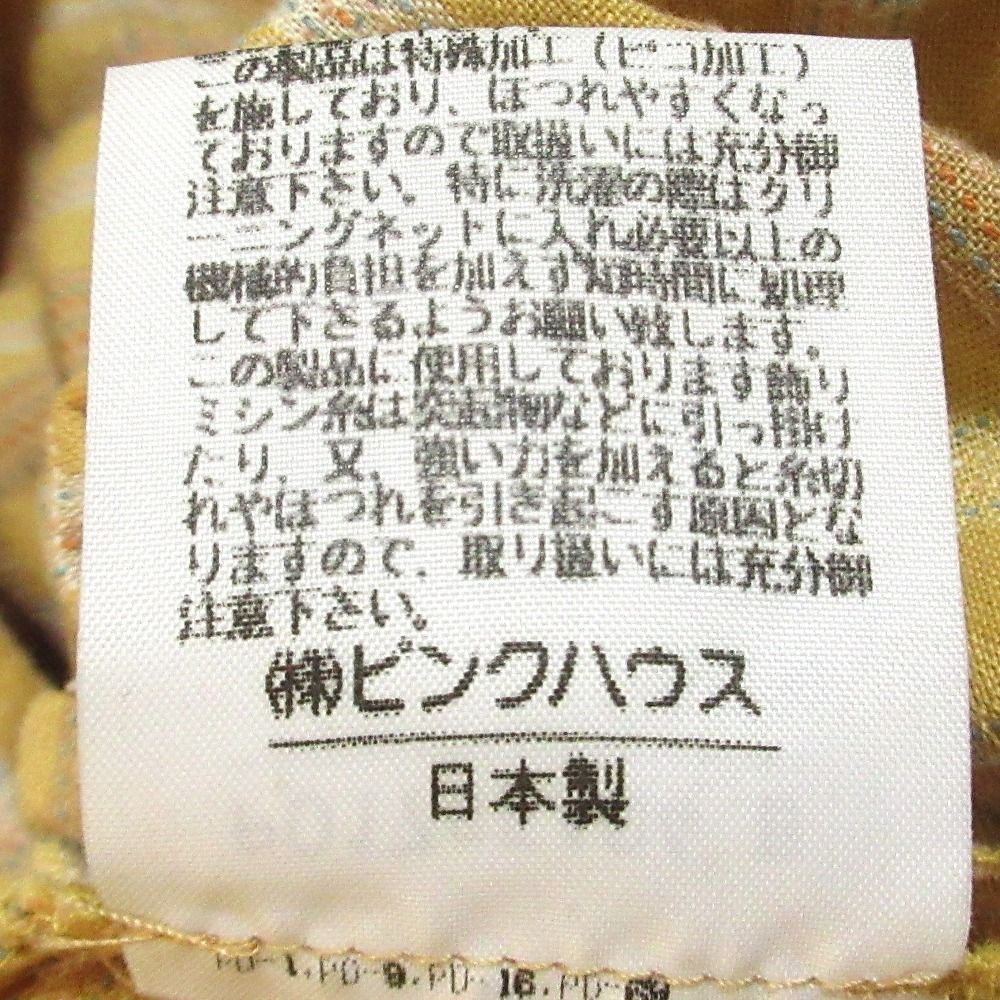 この製品は特殊加工（ピコ加工）
を施しており、ほつれやすくなっ
ておりますので取扱いには充分御
注意下さい。特に洗濯の際はクリ
ーニングネットに入れ必要以上の
機械的負担を加えず短時間に処理
して下さるようお願い致します。
この製品に使用しております飾り
ミシン糸は突起物などに引っ掛け
たり、又、強い力を加えると糸切
れやほつれを引き起こす原因とな
りますので、取り扱いには充分御
注意下さい。
㈱ピンクハウス
日本製
PD-1.PD-9.PD-16.PD-